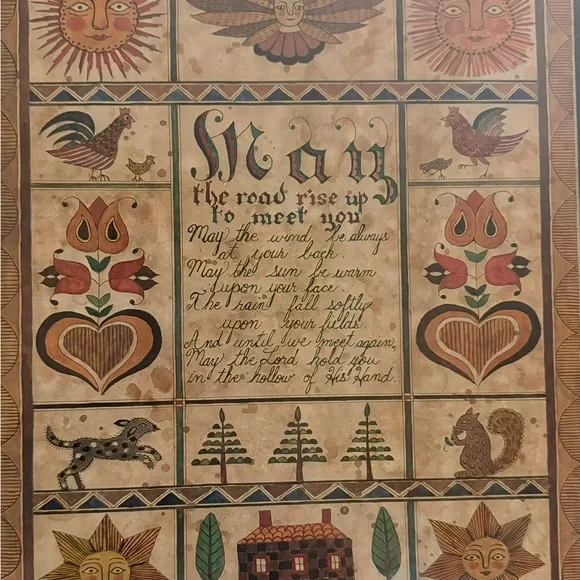 May
the road rise up
to meet you
May the wind be always
at your back.
May the sun be warm
upon your face.
The rain fall softly
upon your fields
And until we meet again,
May the Lord hold you
in the hollow of His Hand.